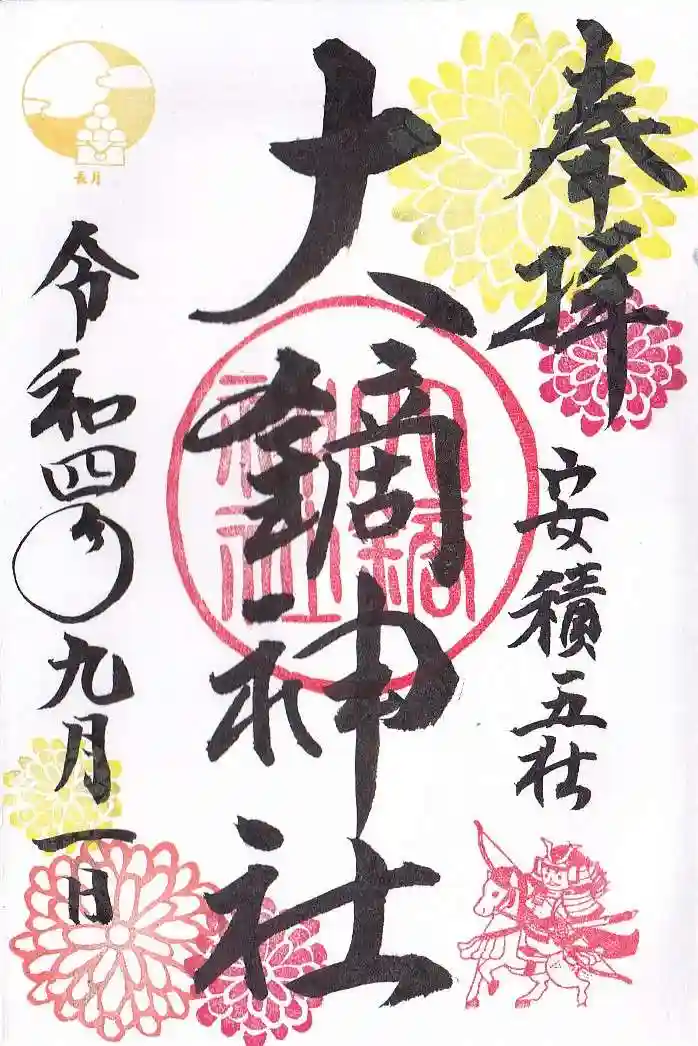 奉拝
安積五社
大鏑神社
大鏑
神社
長月
令和四年九月一日